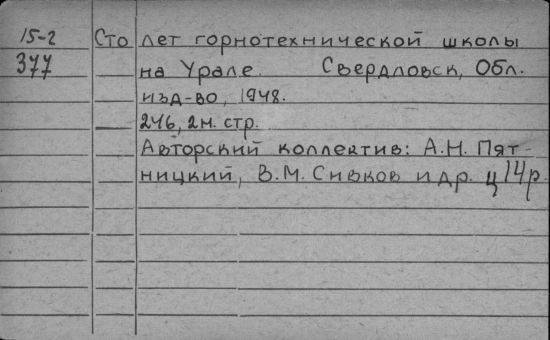 15-2 Сто лет горнотехнической школы
377 на Урале. Свердловск, Обл.
изд-во, 1948.
246, 2 н. стр.
Авторский коллектив: А.Н. Пят-
ницкий, В.М. Сивков и др. ц 14 р.